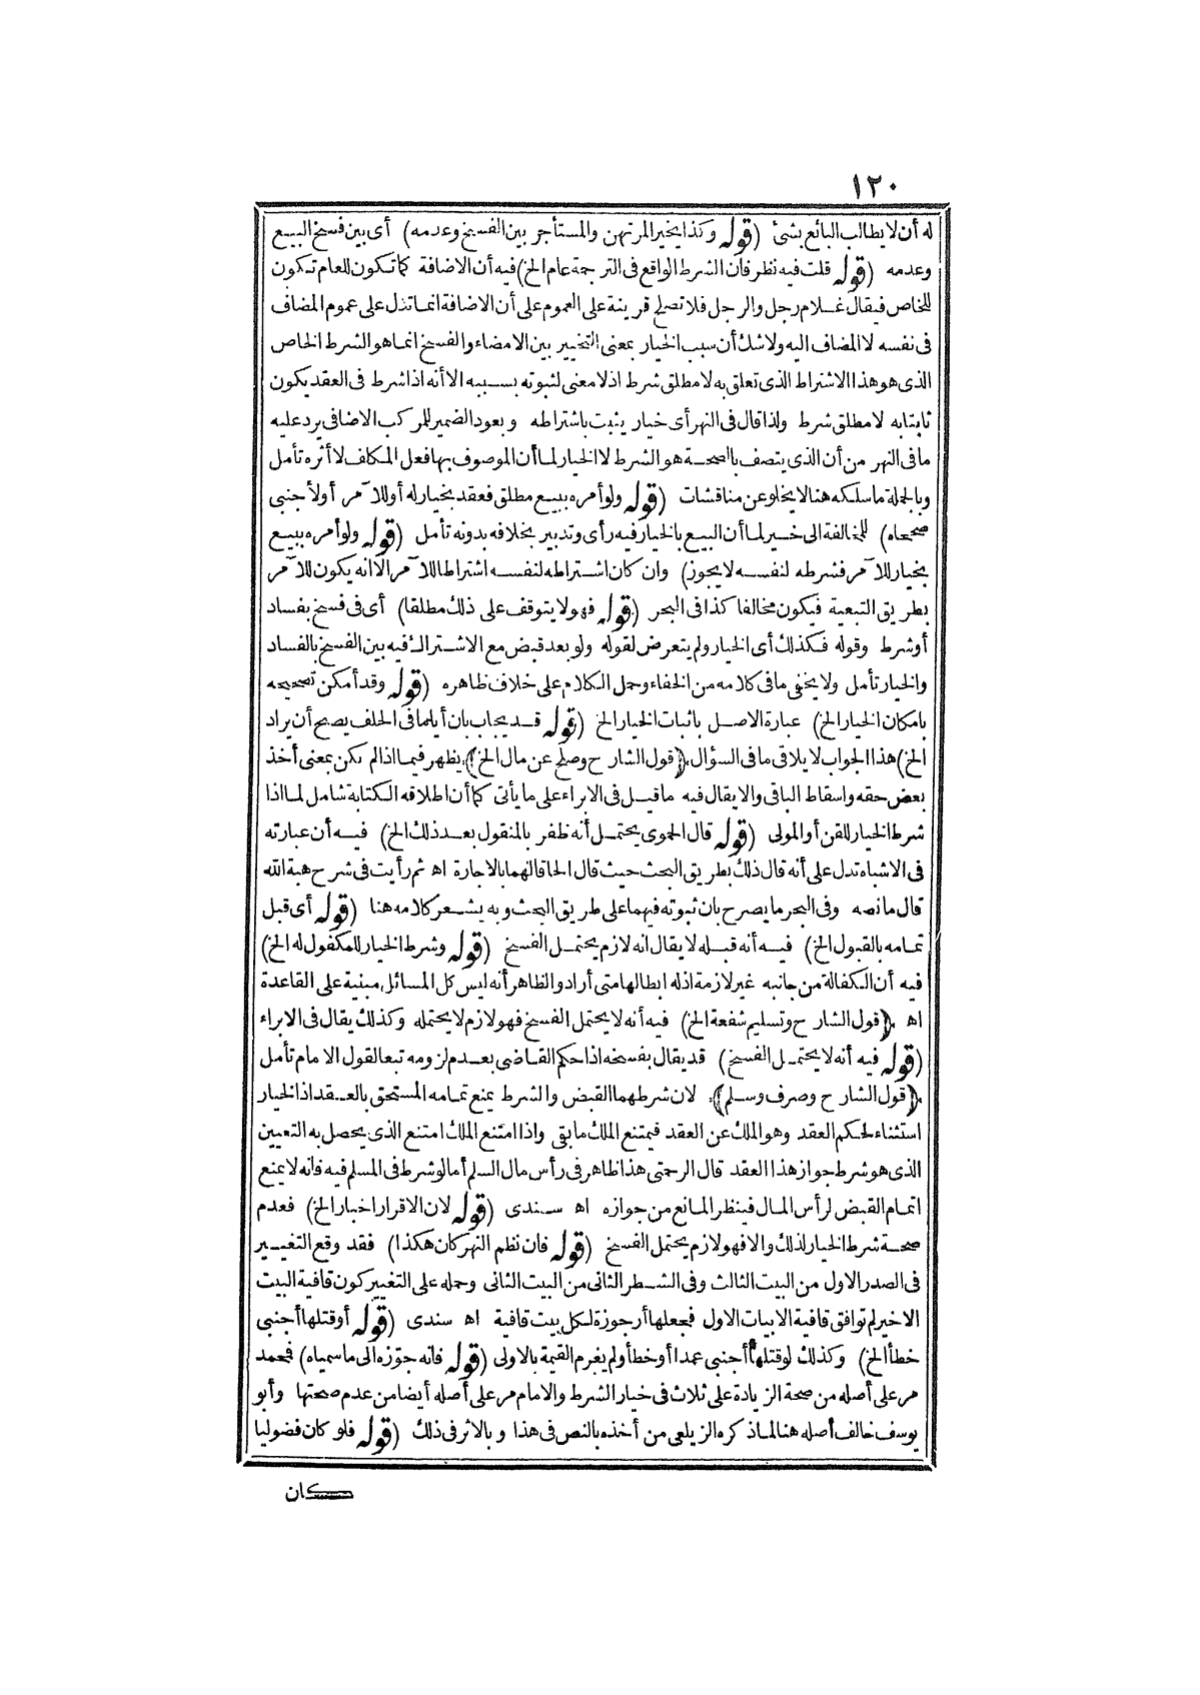 ١٢٠
له أن لا يطالب البائع بشئ (قوله وكذا يخير المرتهن والمستأجر بين الفسخ وعدمه) أى بين فسخ البيع
وعدمه (قوله قلت فيه نظر فان الشرط الواقع فى الترجمة عام الخ) فيه أن الاضافة كما تكون للعام تكون
للخاص فيقال غلام رجل والرجل فلا تصلح قرينة على العموم على أن الاضافة انما تدل على عموم المضاف
فى نفسه لا المضاف اليه ولا شك أن سبب الخيار بمعنى التخيير بين الامضاء والفسخ انما هو الشرط الخاص
الذى هو هذا الاشتراط الذى تعلق به لا مطلق شرط اذ لا معنى لثبوته بسببه الا أنه اذا شرط فى العقد يكون
ثابتا به لا مطلق شرط ولذا قال فى النهر أى خيار يثبت باشتراطه وبعود الضمير للمركب الاضافى يرد عليه
ما فى النهر من أن الذى يتصف بالصحة هو الشرط لا الخيار لما أن الموصوف بها فعل المكلف لا أثره تأمل
وبالجملة ما سلكه هنا لا يخلو عن مناقشات (قوله ولو أمره ببيع مطلق فعقد بخيار له أو للآمر أو لأجنبى
صححاه) للمخالفة الى خير لما أن البيع بالخيار فيه رأى وتدبير بخلافه بدونه تأمل (قوله ولو أمره ببيع
بخيار للآمر فشرطه لنفسه لا يجوز) وان كان اشتراطه لنفسه اشتراطا للآمر الا انه يكون للآمر
بطريق التبعية فيكون مخالفا كذا فى البحر (قوله فهو لا يتوقف على ذلك مطلقا) أى فى فسخ بفساد
أو شرط وقوله فكذلك أى الخيار ولم يتعرض لقوله ولو بعد قبض مع الاشتراك فيه بين الفسخ بالفساد
والخيار تأمل ولا يخفى ما فى كلامه من الخفاء وحمل الكلام على خلاف ظاهره (قوله وقد أمكن تصحيحه
بامكان الخيار الخ) عبارة الاصل باثبات الخيار الخ (قوله قد يجاب بان أياما فى الحلف يصح أن يراد
الخ) هذا الجواب لا يلاقى ما فى السؤال (قول الشارح وصلح عن مال الخ) يظهر فيما اذا لم يكن بمعنى أخذ
بعض حقه واسقاط الباقى والا يقال فيه ما قيل فى الابراء على ما يأتى كما أن اطلاقه الكتابة شامل لما اذا
شرط الخيار للقن أو المولى (قوله قال الحموى يحتمل أنه ظفر بالمنقول بعد ذلك الخ) فيه أن عبارته
فى الاشباه تدل على أنه قال ذلك بطريق البحث حيث قال الحاقا لهما بالاجارة اه ثم رأيت فى شرح هبة الله
قال ما نصه وفى البحر ما يصرح بان ثبوته فيهما على طريق البحث وبه يشعر كلامه هنا (قوله أى قبل
تمامه بالقبول الخ) فيه أنه قبله لا يقال انه لازم يحتمل الفسخ (قوله وشرط الخيار للمكفول له الخ)
فيه أن الكفالة من جانبه غير لازمة اذ له ابطالها متى أراد والظاهر أنه ليس كل المسائل مبنية على القاعدة
اه (قول الشارح وتسليم شفعة الخ) فيه أنه لا يحتمل الفسخ فهو لازم لا يحتمله وكذلك يقال فى الابراء
(قوله فيه أنه لا يحتمل الفسخ) قد يقال بفسخه اذا حكم القاضى بعدم لزومه تبعا لقول الامام تأمل
(قول الشارح وصرف وسلم) لان شرطهما القبض والشرط يمنع تمامه المستحق بالعقد اذ الخيار
استثناء لحكم العقد وهو الملك عن العقد فيمتنع الملك ما بقى واذا امتنع الملك امتنع الذى يحصل به التعيين
الذى هو شرط جواز هذا العقد قال الرحمتى هذا ظاهر فى رأس مال السلم أما لو شرط فى المسلم فيه فانه لا يمنع
اتمام القبض لرأس المال فينظر المانع من جوازه اه سندى (قوله لان الاقرار اخبار الخ) فعدم
صحة شرط الخيار لذلك والا فهو لازم يحتمل الفسخ (قوله فان نظم النهر كان هكذا) فقد وقع التغيير
فى الصدر الاول من البيت الثالث وفى الشطر الثانى من البيت الثانى وحمله على التغيير كون قافية البيت
الاخير لم توافق قافية الابيات الاول فجعلها أرجوزة لكل بيت قافية اه سندى (قوله أو قتلها أجنبى
خطأ الخ) وكذلك لو قتلها أجنبى عمدا أو خطأ ولم يغرم القيمة بالاولى (قوله فانه جوّزه الى ما سمياه) فمحمد
مر على أصله من صحة الزيادة على ثلاث فى خيار الشرط والامام مر على أصله أيضا من عدم صحتها وأبو
يوسف خالف أصله هنا لما ذكره الزيلعى من أخذه بالنص فى هذا وبالاثر فى ذلك (قوله فلو كان فضوليا
كان